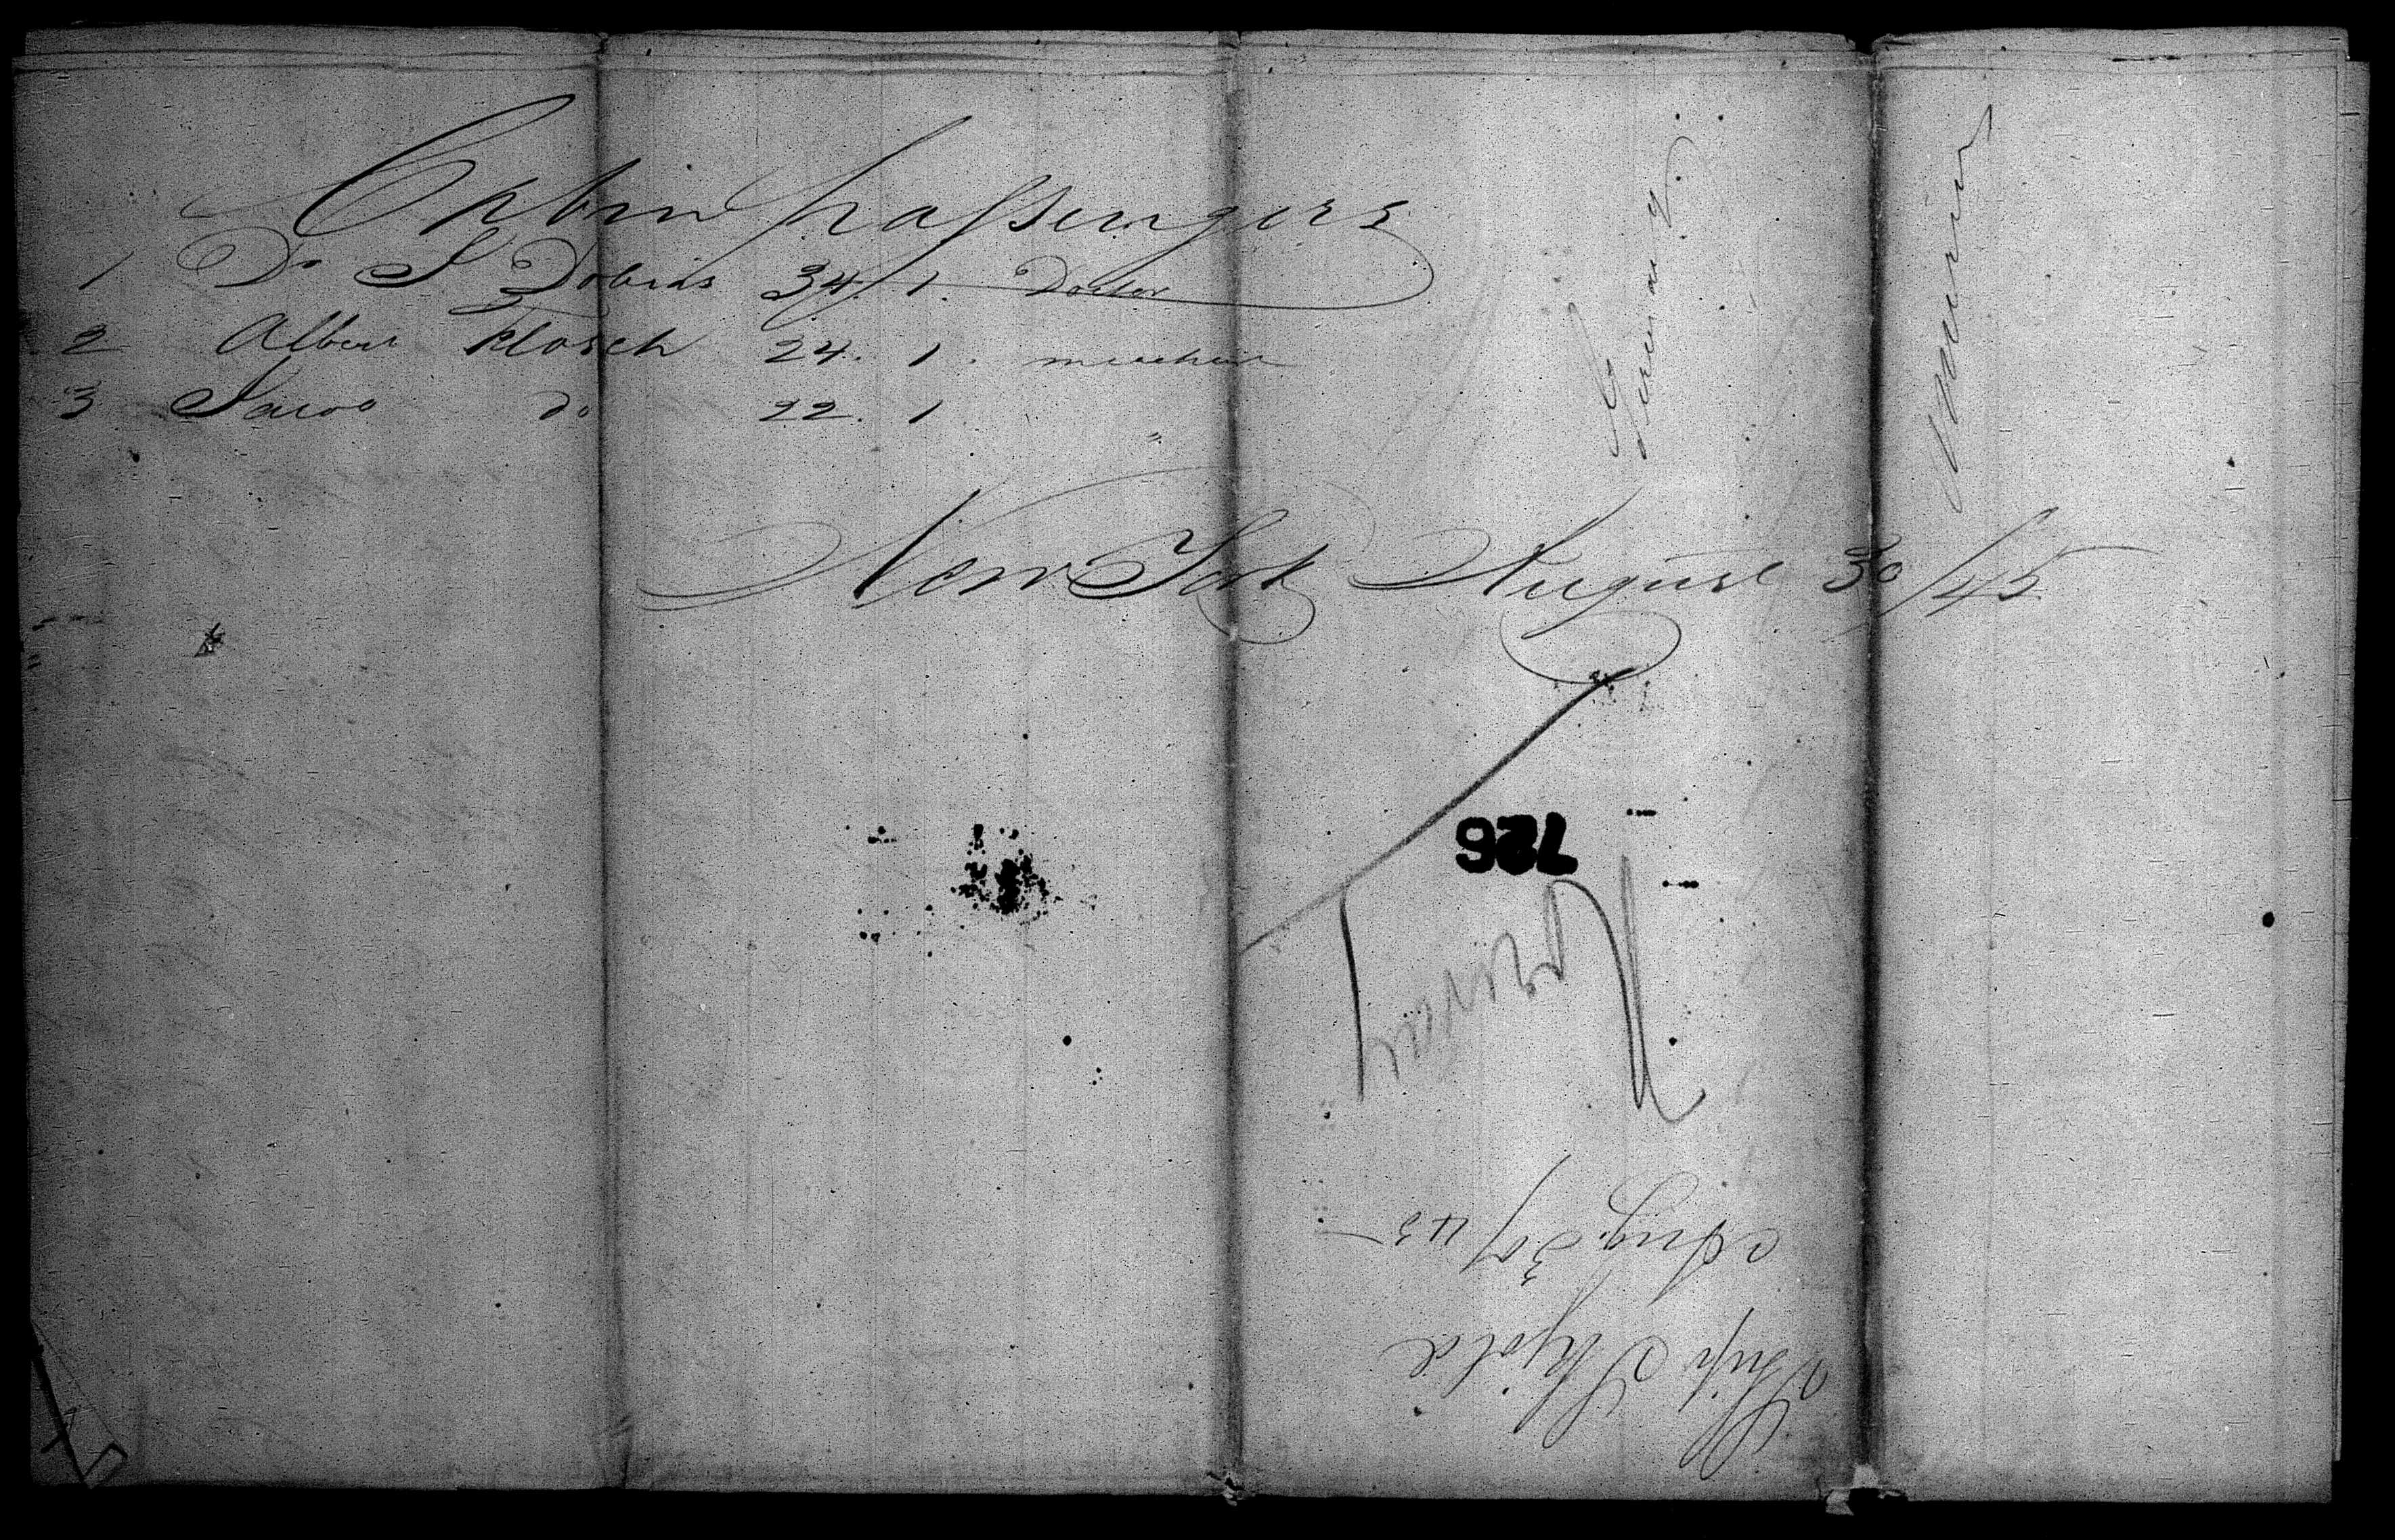 Cabin passengers
1 Dr S Tobias 34 1. Doctor
2 Albert Klosch 24. 1. merchant
3 Jacob do 22. 1 "
New York August 30/45
Germany.
726
Ship Skjold
Aug. 30/45